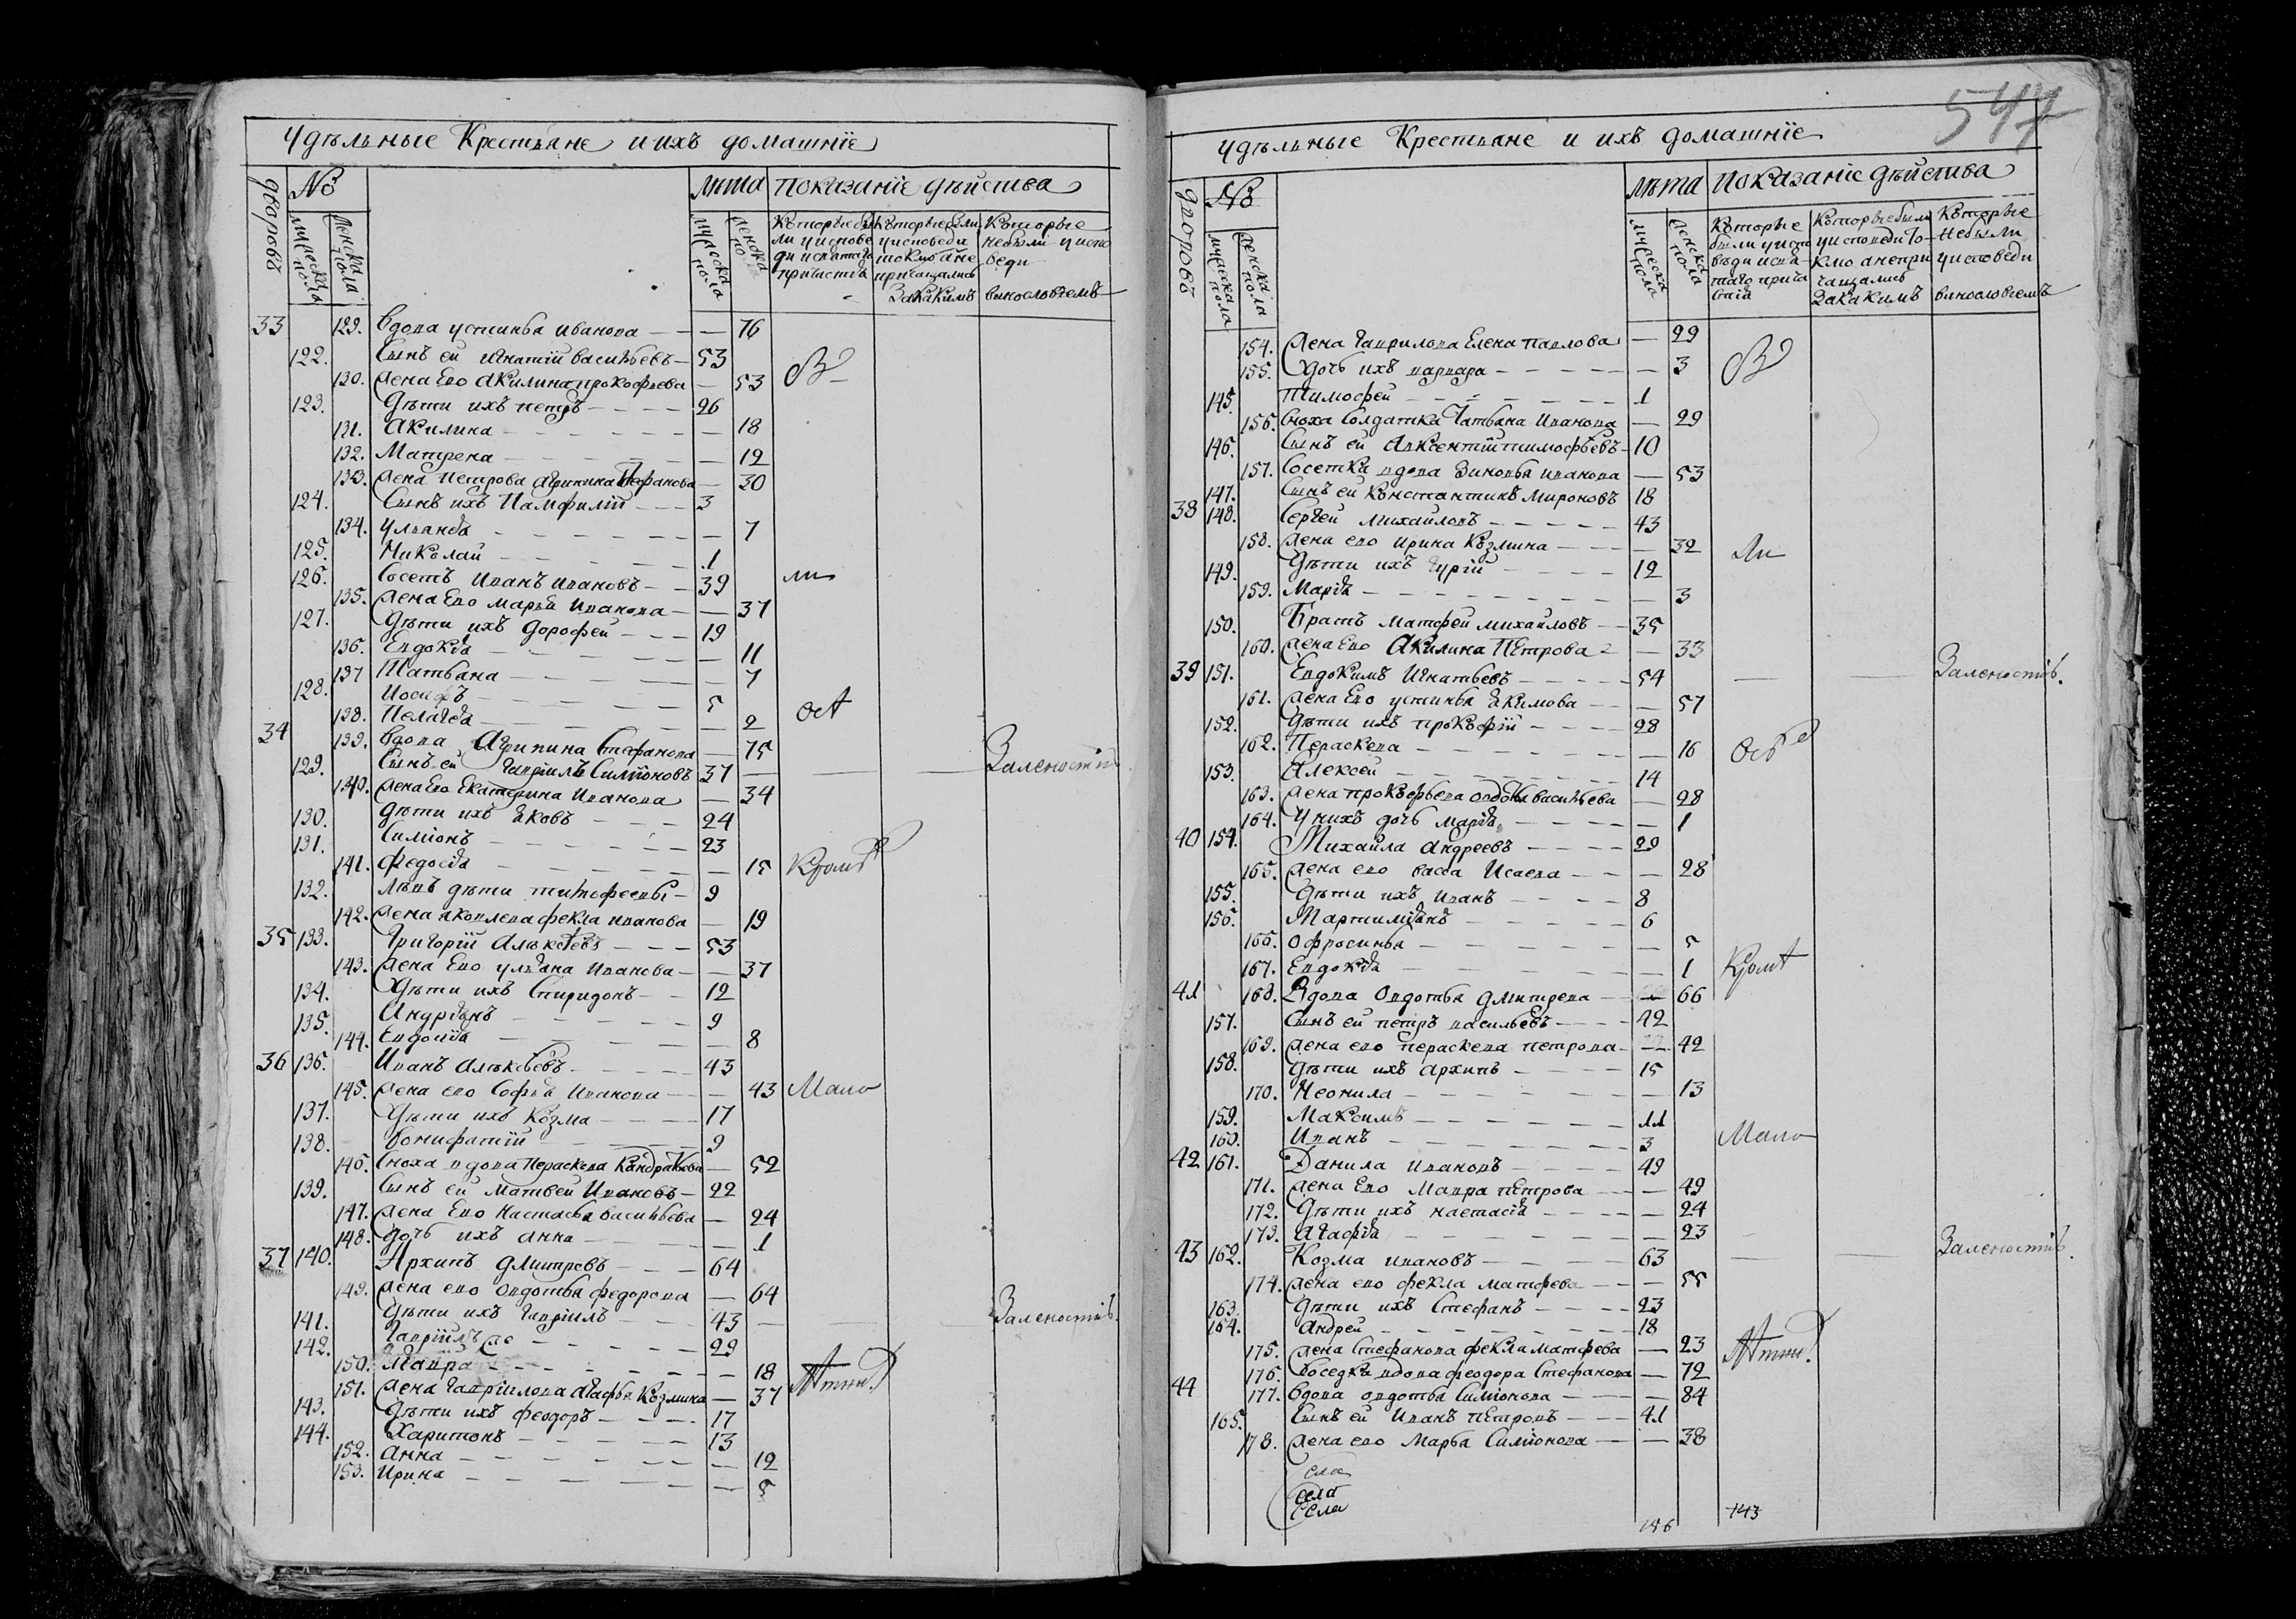 Удѣльные Крестьяне и ихъ домашніе
дворовъ № лѣта показаніе дѣйства
мужеска пола женска пола мужеска пола женска пола
Которые бы Которые были Которые
ли у испове у исповеди небыли у испо
ди и святаго токмо не веди
причастія причащались
За какимъ винословіемъ
33 129. Вдова устинья иванова — 76
122. Сынъ ей игнатій васильевъ 53
130. жена Ево Акилина прокофьева — 53 В
123. дѣти ихъ петръ 26
131. Акилина — 18
132. Матрена — 12
133. жена Петрова Агрипина Стефанова — 30
124. Сынъ ихъ Памфилій 3
134. ульянія — 7
125. Николай 1
126. Соседъ Иванъ Ивановъ 39 ли
135. жена Ево Марья Иванова — 37
127. дѣти ихъ дорофей 19
136. Евдокія — 11
137 Татьяна — 7
128. Иосифъ 5
138. Пелагея — 2 ост
34 139. Вдова Агрипина Стефанова — 75
129. Сынъ ей Гавріилъ Симіоновъ 37 — — — Заленостію
140. жена Ево Екатерина Иванова — 34
130. дѣти ихъ Яковъ 24
131. Симіонъ 23
141. федосія — 15
132. дѣти тимофеевы 9
142. жена яковлева фекла иванова — 19
35 133. Григорій Алексѣевъ 53
143. жена Ево ульяна Иванова — 37
134. дѣти ихъ Спиридонъ 12
135. Андріянъ 9
144. Евдокія — 8
36 136. Иванъ Алексѣевъ 43
145. жена ево Софья Иванова — 43
137. дѣти ихъ Козма 17
138. Вонифатій 9
146. Сноха вдова Пераскева Кандратьева — 52
139. Сынъ ей Матвей Ивановъ 22
147. жена Ево Настасья васильева — 24
148. дочь ихъ анна — 1
37 140. Архипъ дмитревъ 64
149. жена ево овдотья федорова — 64
141. дѣти ихъ Гавріилъ 43 — — Заленостію.
142. Гавріилъ 29
150. Мавра — 18
151. жена Гавріилова Агафья Козмина — 37
143. дѣти ихъ феодоръ 17
144. Харитонъ 13
152. Анна — 12
153. Ирина — 5
547
удѣльные Крестьяне и ихъ домашніе
дворовъ № лѣта показаніе дѣйства
мужеска пола женска пола мужеска пола женска пола
Которые Которые были Которые
были у испо у исповеди то Небыли
вѣди и свя кмо непри у исповеди
таго прича чащались
стія За какимъ винословіемъ
154. жена Гаврилова Елена павлова — 29
155. дочь ихъ варвара — 3 В
145. Тимофей 1
156. Сноха Солдатка Татьяна Иванова — 29
146. Сынъ ей Авксентій тимофѣевъ 10
157. Соседка вдова Зиновья иванова — 53
147. Сынъ ей Константинъ Мироновъ 18
38 148. Сергей Михайловъ 43
158. жена ево ирина Козмина — 32 ли
149. дѣти ихъ Гурій 12
159. Марія — 3
150. Братъ Матфей михайловъ 35
160. жена Ево Акилина Петрова — 33
39 151. Евдокимъ Игнатьевъ 54 — — Заленостію.
161. жена Ево устинья Екимова — 57
152. дѣти ихъ прокофій 28
162. Пераскева — 16
153. Алексей 14
163. жена прокофьева овдотья васильева — 28
164. у нихъ дочь марія — 1
40 154. Михаила Андреевъ 29
165. жена ево васса Исаева — 28
155. дѣти ихъ иванъ 8
156. Мартиміянъ 6
166. Офросинья — 5
167. Евдокія — 1
41 168. Вдова Овдотья дмитрева — 66
157. Сынъ ей петръ васильевъ 42
169. жена ево пераскева петрова — 42
158. дѣти ихъ архипъ 15
170. Неонила — 13
159. Максимъ 11
160. Иванъ 3
42 161. Данила ивановъ 49
171. жена Ево Мавра петрова — 49
172. дѣти ихъ настасія — 24
173. Агафія — 23
43 162. Козма ивановъ 63 — — Заленостію.
174. жена ево фекла матфева — 55
163. дѣти ихъ Стефанъ 23
164. Андрей 18
175. жена Стефанова фекла матфева — 23
176. Соседка вдова феодора Стефанова — 72
44 177. Вдова овдотья Симіонова — 84
165. Сынъ ей Иванъ петровъ 41
178. жена ево Марья Симіонова — 38
села
села
146 143